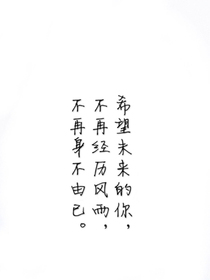 希望未来的你，
不再经历风雨，
不再身不由己。